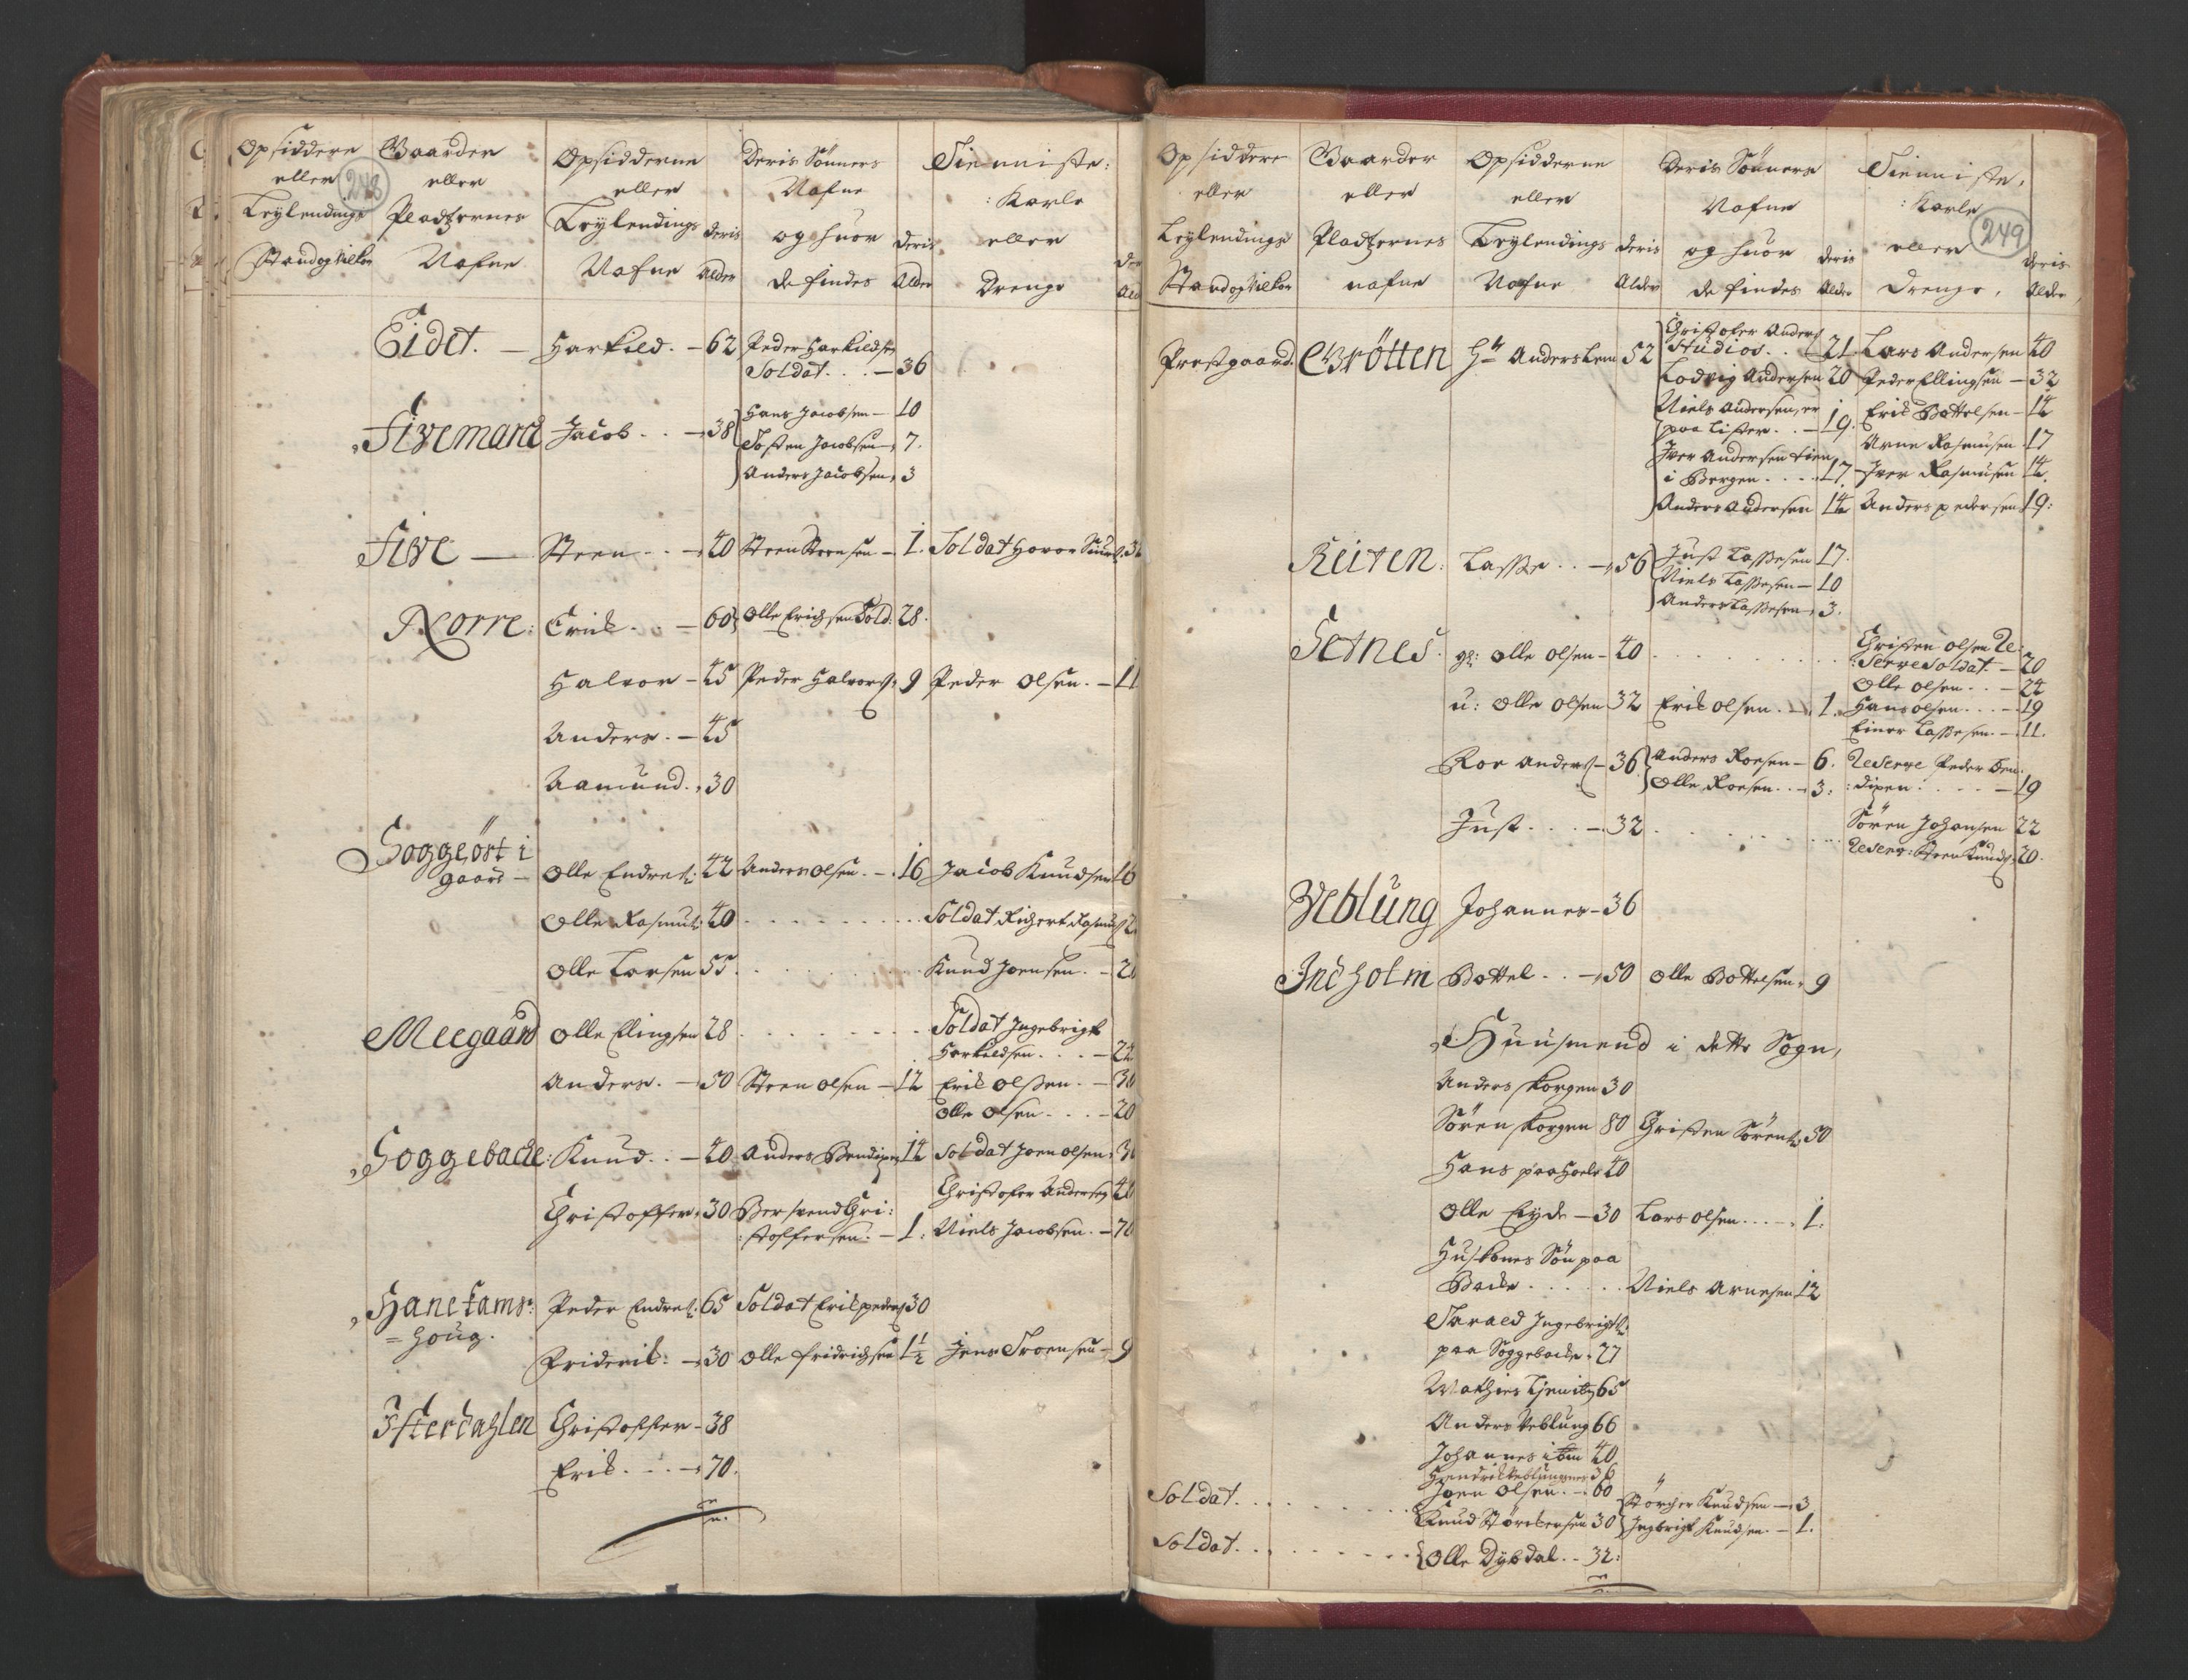 248
Opsiddere eller Leylendings Stand og Vilkor
Gaarder eller Pladzernes Nafne
Opsidderne eller Leylendings Nafne
deris Alder
Deris Sönners Nafne og huor de findes
deris Alder
Tienniste: Karle eller Drenge
Eidet. — Harkild. — 62 Peder Harkilds:
Soldat. . . — 36
Fivemard Jacob. . — 38 Hans Jacobsen — 10
Tosten Jacobsen 7.
Anders Jacobsen 3
Five — Steen . . — 40 Steen Steensen — 1. Soldat
Norre: Erick. . — 60 Olle Erichsen Sold: 28.
Halvor — 45 Peder Halvors: 9 Peder Olsen. — 11
Anders. — 45
Aamund. 30
Soggeöst i
gaard — Olle Endres: 42 Anders Olsen. — 16 Jacob Knudsen 16
Olle Rasmus: 40 . . . Soldat Richert Rasmus:
Olle Larsen 55 . . . Knud Joensen. — 20
Meegaard Olle Ellingsen 28 . . . Soldat Ingebrigt
Harkildsen. . . — 24
Anders. — 50 Steen Olsen — 12 Erik Olssen. — 30
Olle Olsen. . . — 20
Soggebacke: Knud. . — 40 Anders Bendixen 14 Soldat Joen Olsen
Christofer Andersen 40
Christoffer. 30 Bersvend Chri:
:stoffersen. — 1: Niels Jacobsen. — 70
Hanekams:
= houg. Peder Endres: 65 Soldat Erik peders: 30
Friderik: — 30 Olle fridrichsen 1½ Jens Troensen — 9
Isterdahlen Christoffer — 38
Erik. . . — 70.
249
Opsiddere eller Leylendings Stand og Vilkor
Gaarder eller Pladzernes nafne
Opsidderne eller Leylendings Nafne
deris Alder
Deris Sönners Nafne og huor de findes
deris Alder
Tienniste, :Karle eller Drenge,
deris Alder
Prestgaard. Grötten Hr Anders Lem 52 Christofer Anders:
Studios. . — 21. Lars Andersen 40
Lodvig Andersen 20 Peder Ellingsen — 32
Niels Andersen, er
paa Lister. . — 19. Erik Bottelsen — 14
Arne Rasmusen 17
Iver Andersen tien
i Bergen. . . . 17. Iver Rasmusen 14.
Anders Andersen 14 Anders pedersen 19:
Reiten: Lasse. . — 56 Just Lassesen 17.
Niels Lassesen — 10
Anders Lassesen 3.
Setnes. gl: Olle Olsen — 40 . . . Christen Olsen Re:
:serve Soldat — 20
Olle Olsen. . — 24
u: Olle Olsen 32 Erik Olsen. — 1. Hans Olsen. . . — 19
Einer Lassesen. — 11.
Roe Anders: — 36 Anders Roesen — 6. Reserve Peder Ben:
Olle Roesen. . 3: :dixen. . . . — 19
Just. . . — 32 . . . Sören Johansen 22
Reserv: Steen Knuds: 20.
Veblung Johannes — 36
Indholm Bottel . . — 50 Olle Bottelsen, 9
Huusmend i dette Sogn,
Anders Korgen 30
Sören Korgen 80 Christen Sörens: 30
Hans paa Hoele 40
Olle Eyde — 30 Lars Olsen. . . — 1.
Huskones Sön paa
Backe. . . . Niels Arnesen 12
Tarald Ingebrigts:
paa Soggebacke. 27
Mathies 65
Anders Veblung 66
Johannes ibm 40
Hendrik Veblungnes 36
Soldat. . . . Joen Olsen. — 60
Knud Störckersen 30 Störcker Knudsen — 3
Ingbrigt Knudsen. — 1.
Soldat. . . . Olle Dybdal. . 32: